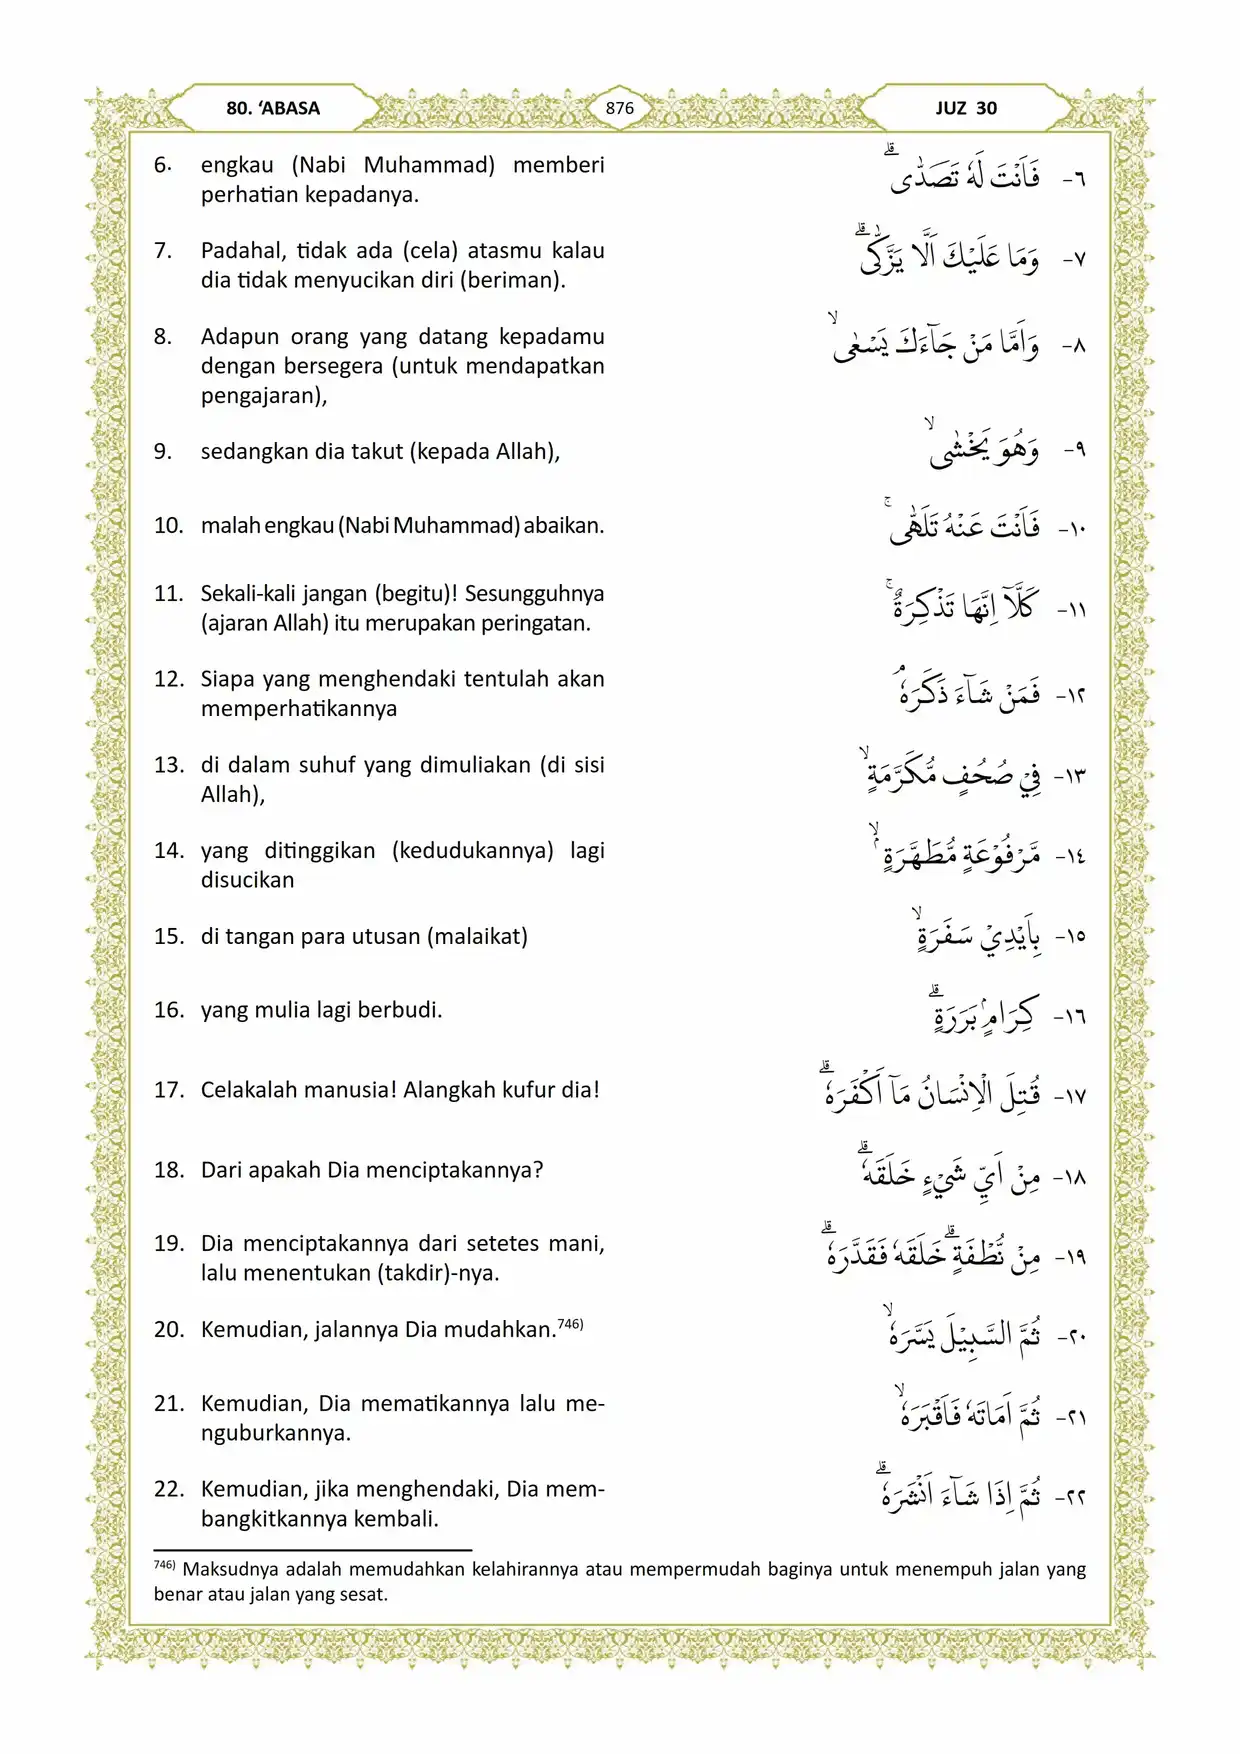 80. ‘ABASA
876
JUZ 30
6. engkau (Nabi Muhammad) memberi
perhatian kepadanya.
فَاَنْتَ لَهٗ تَصَدّٰىۗ ‎-٦
7. Padahal, tidak ada (cela) atasmu kalau
dia tidak menyucikan diri (beriman).
وَمَا عَلَيْكَ اَلَّا يَزَّكّٰىۗ ‎-٧
8. Adapun orang yang datang kepadamu
dengan bersegera (untuk mendapatkan
pengajaran),
وَاَمَّا مَنْ جَاۤءَكَ يَسْعٰىۙ ‎-٨
9. sedangkan dia takut (kepada Allah),
وَهُوَ يَخْشٰىۙ ‎-٩
10. malah engkau (Nabi Muhammad) abaikan.
فَاَنْتَ عَنْهُ تَلَهّٰىۚ ‎-١٠
11. Sekali-kali jangan (begitu)! Sesungguhnya
(ajaran Allah) itu merupakan peringatan.
كَلَّآ اِنَّهَا تَذْكِرَةٌ ۚ ‎-١١
12. Siapa yang menghendaki tentulah akan
memperhatikannya
فَمَنْ شَاۤءَ ذَكَرَهٗ ۘ ‎-١٢
13. di dalam suhuf yang dimuliakan (di sisi
Allah),
فِيْ صُحُفٍ مُّكَرَّمَةٍۙ ‎-١٣
14. yang ditinggikan (kedudukannya) lagi
disucikan
مَّرْفُوْعَةٍ مُّطَهَّرَةٍ ۢ ۙ ‎-١٤
15. di tangan para utusan (malaikat)
بِاَيْدِيْ سَفَرَةٍۙ ‎-١٥
16. yang mulia lagi berbudi.
كِرَامٍۢ بَرَرَةٍۗ ‎-١٦
17. Celakalah manusia! Alangkah kufur dia!
قُتِلَ الْاِنْسَانُ مَآ اَكْفَرَهٗۗ ‎-١٧
18. Dari apakah Dia menciptakannya?
مِنْ اَيِّ شَيْءٍ خَلَقَهٗۗ ‎-١٨
19. Dia menciptakannya dari setetes mani,
lalu menentukan (takdir)-nya.
مِنْ نُّطْفَةٍۗ خَلَقَهٗ فَقَدَّرَهٗۗ ‎-١٩
20. Kemudian, jalannya Dia mudahkan.746)
ثُمَّ السَّبِيْلَ يَسَّرَهٗۙ ‎-٢٠
21. Kemudian, Dia mematikannya lalu me-
nguburkannya.
ثُمَّ اَمَاتَهٗ فَاَقْبَرَهٗۙ ‎-٢١
22. Kemudian, jika menghendaki, Dia mem-
bangkitkannya kembali.
ثُمَّ اِذَا شَاۤءَ اَنْشَرَهٗۗ ‎-٢٢
746) Maksudnya adalah memudahkan kelahirannya atau mempermudah baginya untuk menempuh jalan yang
benar atau jalan yang sesat.